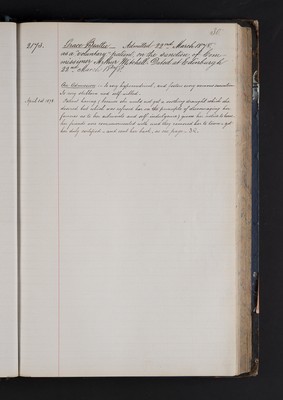 36
2173. Grace Beattie — Admitted 22nd March 1878,
as a "voluntary" patient, on the sanction of Com-
missioner Arthur Mitchell. Dated at Edinburgh
22nd March 1878.
On Admission — Is very hypochondriacal, and has many nervous sensations.
Is very stubborn and self willed.
April 1st 1878. Patient having (because she would not get a soothing draught which she
desired but which was refused her on the principle of discouraging her
giving as to her ailments and self indulgence) given her notice to leave,
her friends were communicated with and they removed her to have
her duly certified — and sent her back, as on page 36.